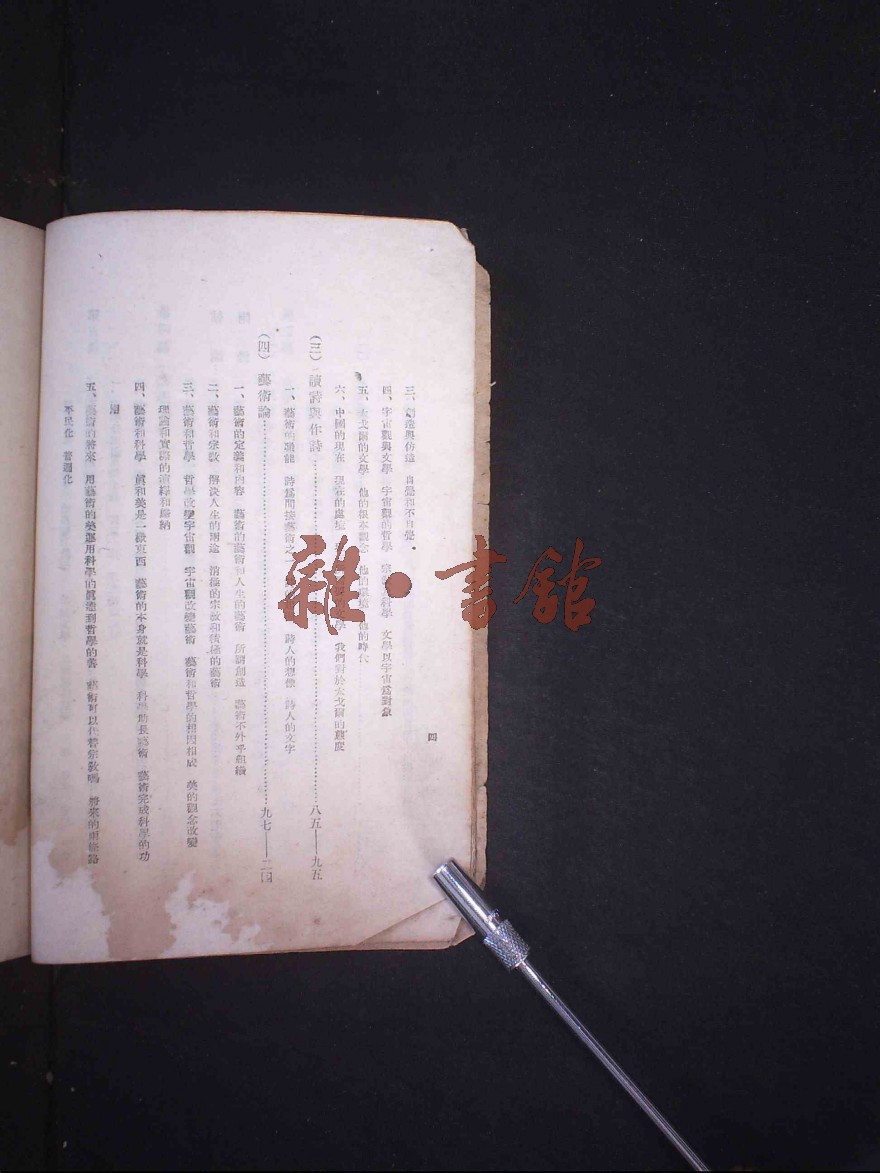 三、創造與仿造　自覺和不自覺。
四、宇宙觀與文學　宇宙觀的哲學　宗　科學　文學以宇宙爲對象
五、太戈爾的文學　他的根本觀念　他的環境　他的時代
六、中國的現在　現在的處境　學　我們對於太戈爾的態度
（三）讀詩與作詩……八五——九五
一、藝術的職能　詩爲間接藝術之　詩人的想像　詩人的文字
（四）藝術論……九七——一二四
一、藝術的定義和內容　藝術的藝術和人生的藝術　所謂創造　藝術不外乎組織
二、藝術和宗敎　解決人生的兩途　消極的宗敎和積極的藝術
三、藝術和哲學　哲學改變宇宙觀　宇宙觀改變藝術　藝術和哲學的相因相成　美的觀念改變
理論和實際的演繹和歸納
四、藝術和科學　眞和美是一樣東西　藝術的本身就是科學　科學助長藝術　藝術完成科學的功
用
五、藝術的將來　用藝術的美運用科學的眞達到哲學的善　藝術可以代替宗敎嗎　將來的兩條路
平民化　普遍化
四
雜·書館